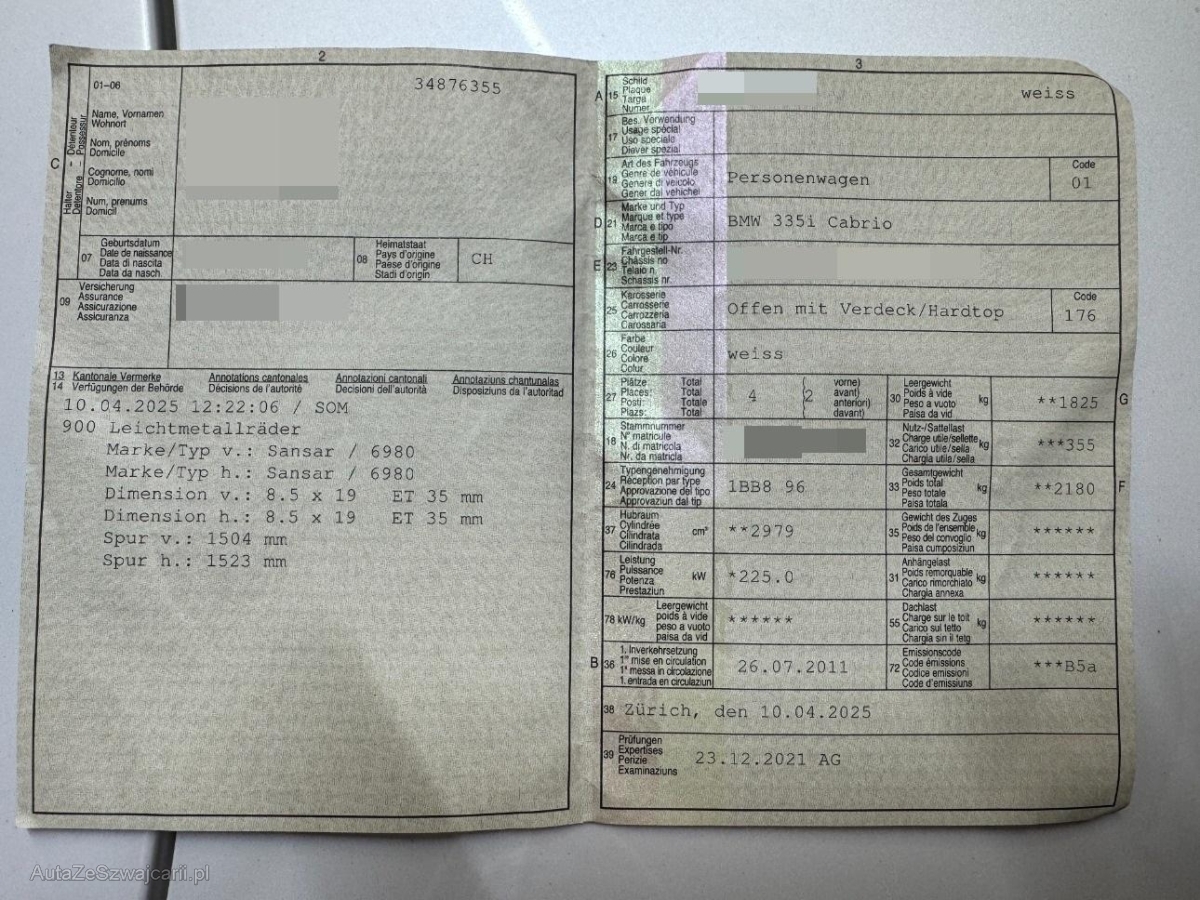 2
01–06
34876355
Halter - Détenteur
Detentore - Possessur
C
Name, Vornamen
Wohnort
Nom, prénoms
Domicile
Cognome, nomi
Domicilio
Num, prenums
Domicil
07
Geburtsdatum
Date de naissance
Data di nascita
Data da nasch.
08
Heimatstaat
Pays d'origine
Paese d'origine
Stadi d'origin
CH
09
Versicherung
Assurance
Assicurazione
Assicuranza
13 Kantonale Vermerke Annotations cantonales Annotazioni cantonali Annotaziuns chantunalas
14 Verfügungen der Behörde Décisions de l'autorité Decisioni dell'autorità Disposiziuns da l'autoritad
10.04.2025 12:22:06 / SOM
900 Leichtmetallräder
Marke/Typ v.: Sansar / 6980
Marke/Typ h.: Sansar / 6980
Dimension v.: 8.5 x 19 ET 35 mm
Dimension h.: 8.5 x 19 ET 35 mm
Spur v.: 1504 mm
Spur h.: 1523 mm
3
A
15
Schild
Plaque
Targa
Numer
weiss
17
Bes. Verwendung
Usage spécial
Uso speciale
Diever spezial
19
Art des Fahrzeugs
Genre de véhicule
Genere di veicolo
Gener dal vehichel
Personenwagen
Code
01
D
21
Marke und Typ
Marque et type
Marca e tipo
Marca e tip
BMW 335i Cabrio
E
23
Fahrgestell-Nr.
Châssis no
Telaio n.
Schassis nr.
25
Karosserie
Carrosserie
Carrozzeria
Carossaria
Offen mit Verdeck/Hardtop
Code
176
26
Farbe
Couleur
Colore
Colur
weiss
27
Plätze Total
Places: Total
Posti: Totale
Plazs: Total
4
(
2
vorne)
avant)
anteriori)
davant)
30
Leergewicht
Poids à vide
Peso a vuoto
Paisa da vid
kg
**1825
G
18
Stammnummer
N° matricule
N. di matricola
Nr. da matricla
32
Nutz-/Sattellast
Charge utile/sellette
Carico utile/sella
Chargia utila/sella
kg
***355
24
Typengenehmigung
Réception par type
Approvazione del tipo
Approvaziun dal tip
1BB8 96
33
Gesamtgewicht
Poids total
Peso totale
Paisa totala
kg
**2180
F
37
Hubraum
Cylindrée
Cilindrata
Cilindrada
cm³
**2979
35
Gewicht des Zuges
Poids de l'ensemble
Peso del convoglio
Paisa cumposiziun
kg
******
76
Leistung
Puissance
Potenza
Prestaziun
kW
*225.0
31
Anhängelast
Poids remorquable
Carico rimorchiato
Chargia annexa
kg
******
78 kW/kg
Leergewicht
poids à vide
peso a vuoto
paisa da vid
******
55
Dachlast
Charge sur le toit
Carico sul tetto
Chargia sin il tetg
kg
******
B
36
1. Inverkehrsetzung
1re mise en circulation
1a messa in circolazione
1. entrada en circulaziun
26.07.2011
72
Emissionscode
Code émissions
Codice emissioni
Code d'emissiuns
***B5a
38
Zürich, den 10.04.2025
39
Prüfungen
Expertises
Perizie
Examinaziuns
23.12.2021 AG
AutaZeSzwajcarii.pl